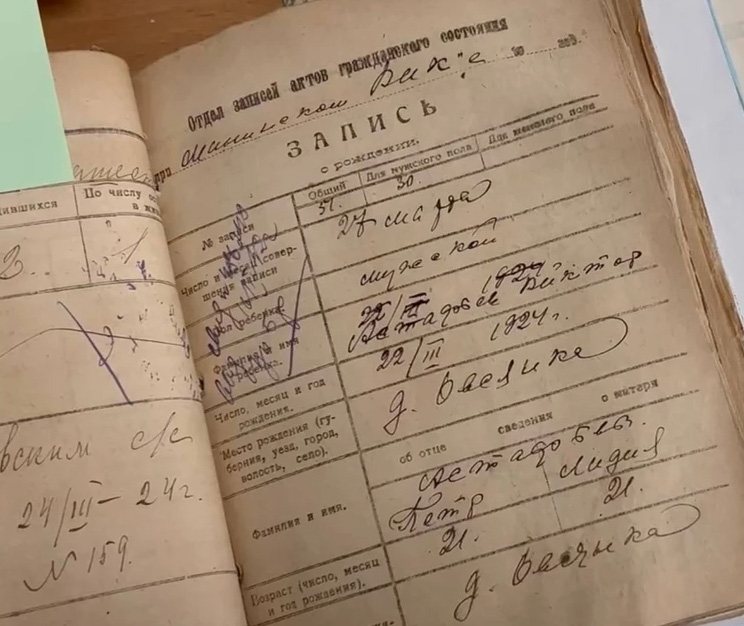 Отдел записей актов гражданского состояния
при Вик'е 19 года.
ЗАПИСЬ
о рождении.
Общий Для мужского пола Для женского пола
№ записи 51. 30.
Число и месяц совершения записи 27 марта
Пол ребенка. мужской
22/III 1924
Фамилия и имя ребенка. Астафьев Виктор
Число, месяц и год рождения. 22/III 1924 г.
Место рождения (губерния, уезд, город, волость, село). д. Овсянка
сведения
об отце о матери
Фамилия и имя. Астафьевы.
Петр Лидия
Возраст (число, месяц и год рождения). 21. 21.
д. Овсянка
ившихся
По числу
в жи
2. 1
вским с/с
24/III – 24 г.
N 159.